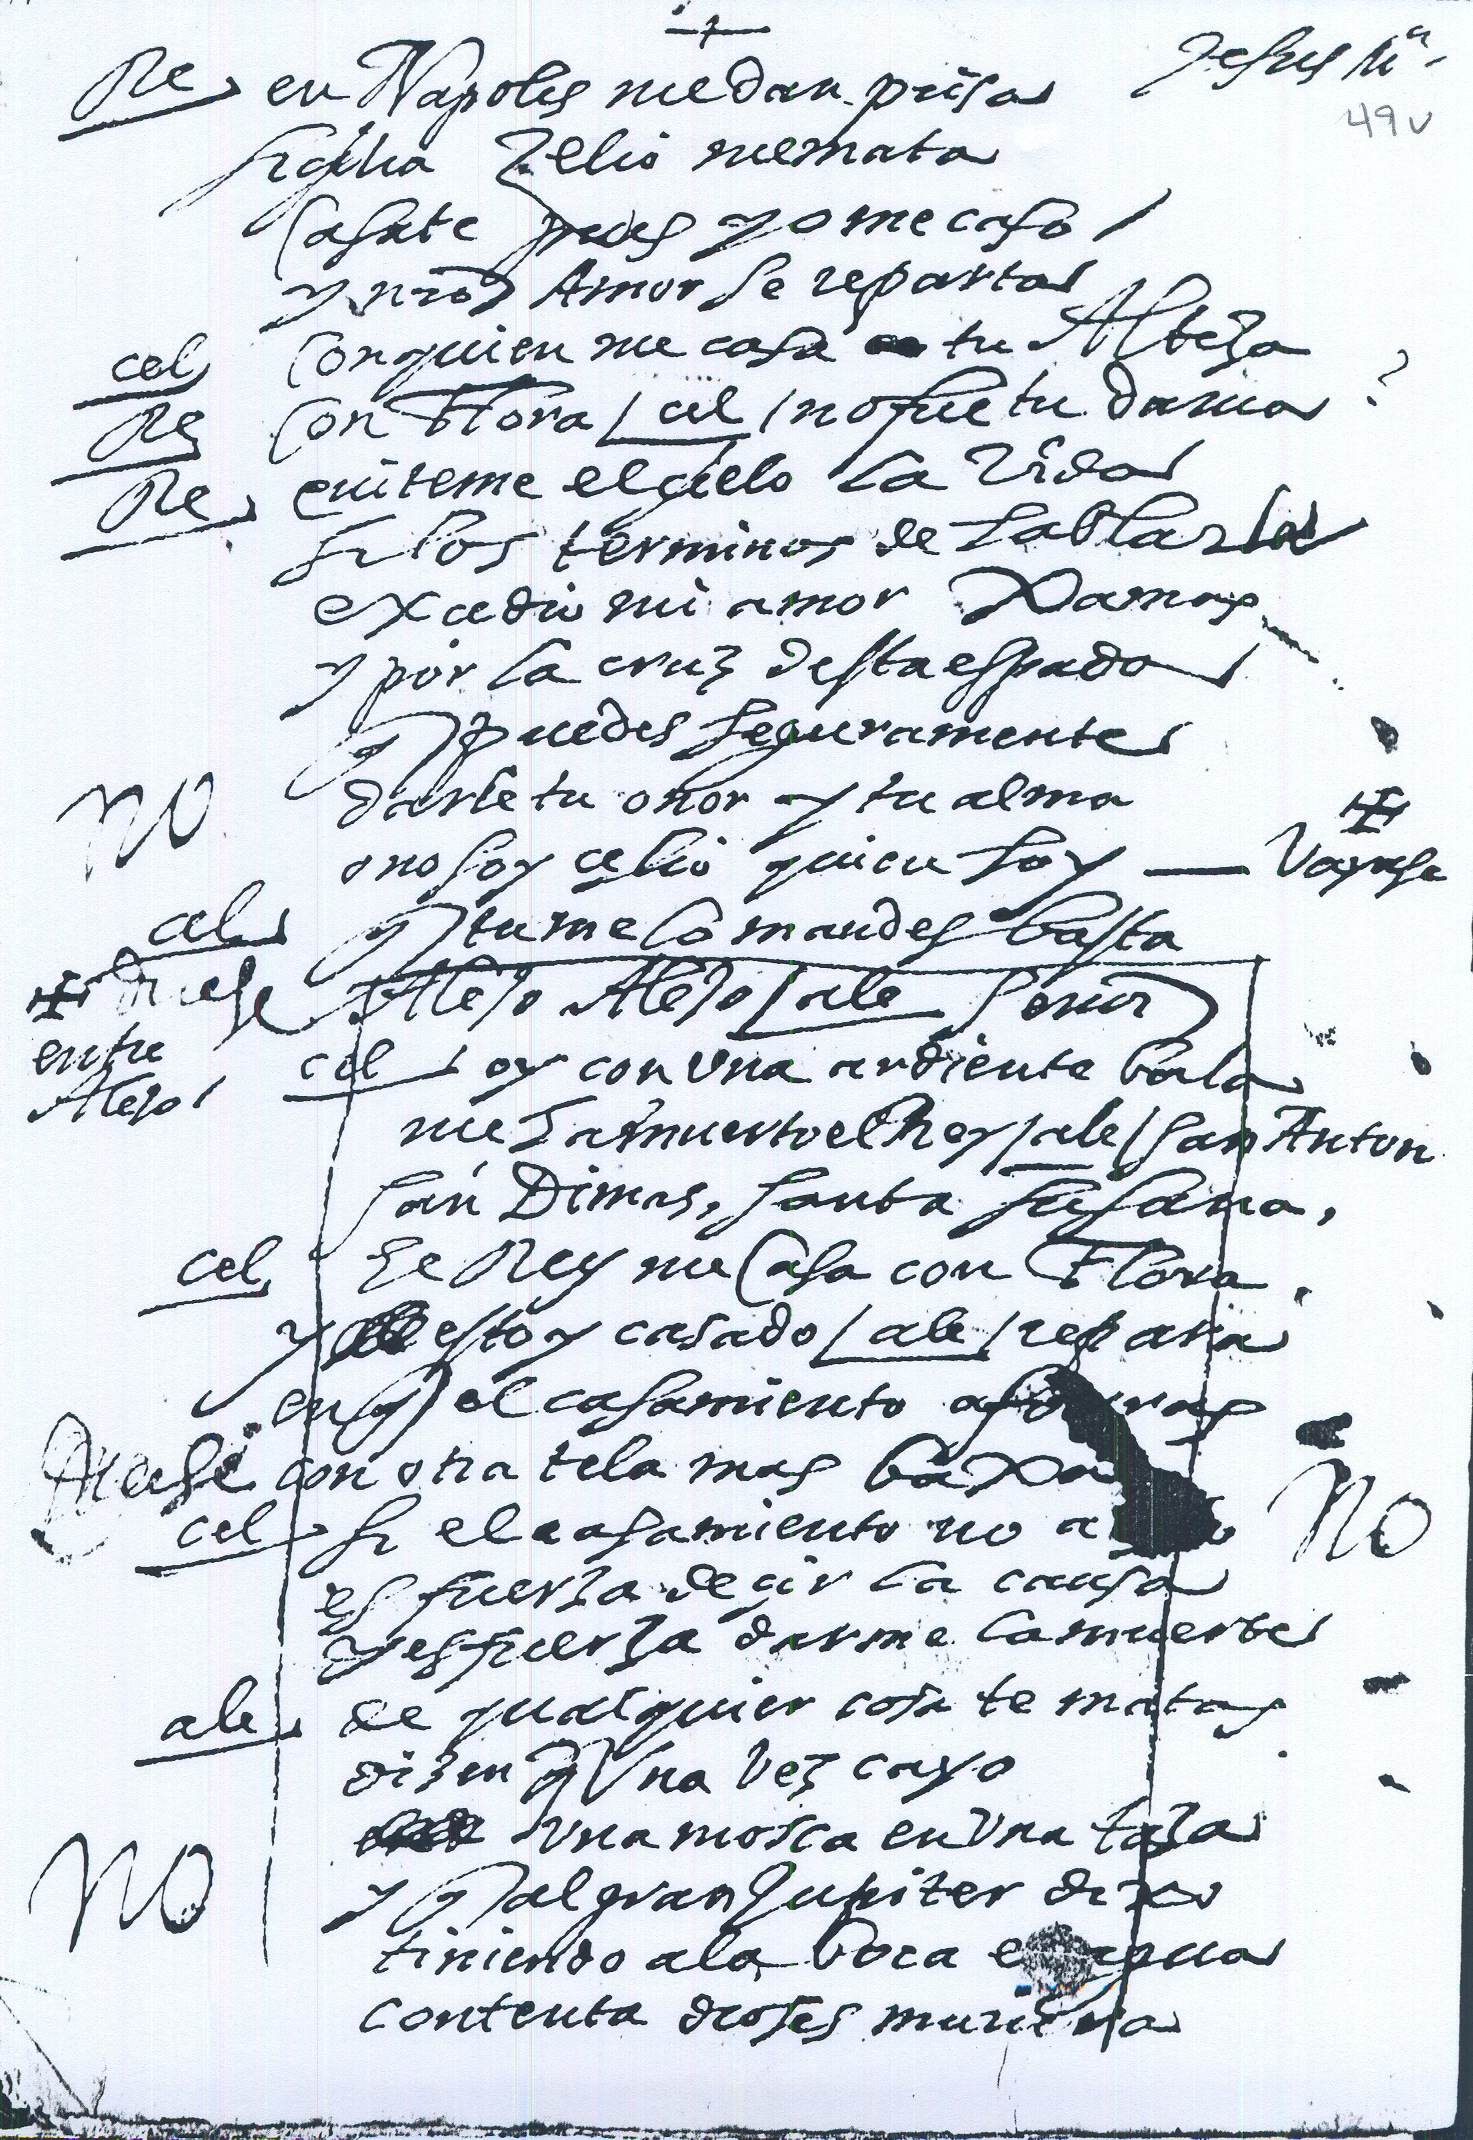 Jesus Mª
49v
Re en Napoles me dan prisa
Sicilia Zelio me mata
Casate pues yo me caso
y nro Amor se reparta
cel Con quien me casa tu Alteza
Re Con Flora / cel / no fue tu dama ?
Re quiteme el cielo la Vida
si los terminos de hablarla
excedio mi amor Xamas
y por la cruz desta espada
q puedes seguramente
darle tu onor y tu alma
no
o no soy celio quien soy — Vayase
cel q tu me lo mandes basta
entre
Alejo
Alejo Alejo / ale Señor
cel oy con Una ardiente bala
me ha muerto el Rey / ale / San Anton
San Dimas, Santa Susana,
cel El Rey me Casa con Flora,
y estoy casado / ale / repara
en q el casamiento
con otra tela mas baxa
cel si el casamiento no
no
es fuerza decir la causa
y es fuerza darme la muerte
ale de qualquier cosa te matas
dizen q Una Vez cayo
una mosca en Una taza
no
y q al gran Jupiter dixo
tiniendo a la boca el agua
contenta dioses muriera